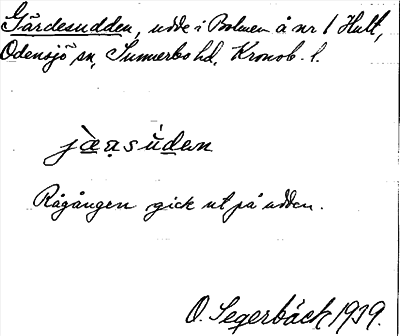 Gärdesudden, udde i Bolmen å nr 1 Hult,
Odensjö sn, Sunnerbo hd, Kronob. l.
jæ̀ṇsúdan
Rågången gick ut på udden.
O. Segerbäck 1939.